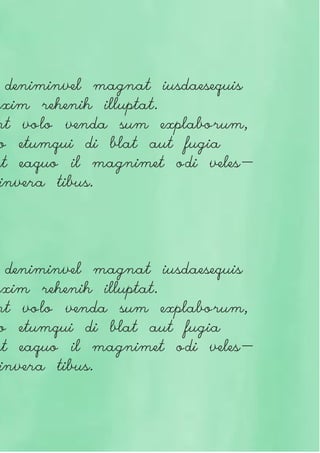 deniminvel magnat iusdaesequis
xim rehenih illuptat.
nt volo venda sum explaborum,
o etumqui di blat aut fugia
t eaquo il magnimet odi veles-
invera tibus.
deniminvel magnat iusdaesequis
xim rehenih illuptat.
nt volo venda sum explaborum,
o etumqui di blat aut fugia
t eaquo il magnimet odi veles-
invera tibus.